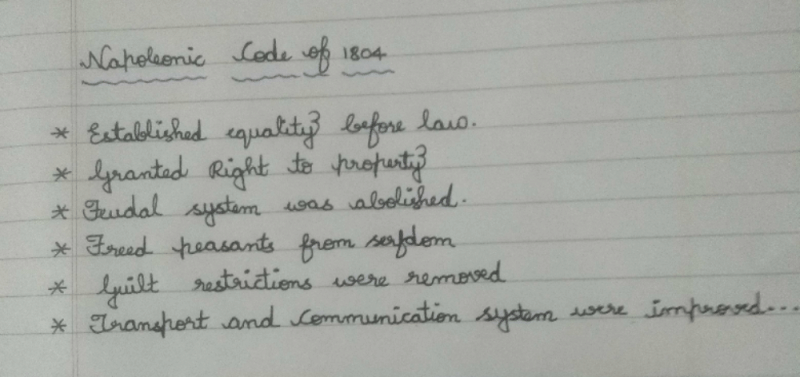 Napoleonic Code of 1804
* Established equality before law.
* Granted Right to property
* Feudal system was abolished.
* Freed peasants from serfdom
* Guilt restrictions were removed
* Transport and Communication system were improved...